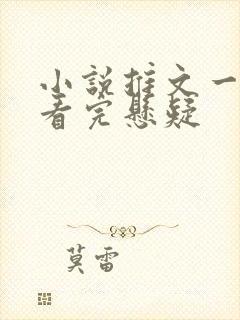 小説推文一
看完懸疑
莫雷